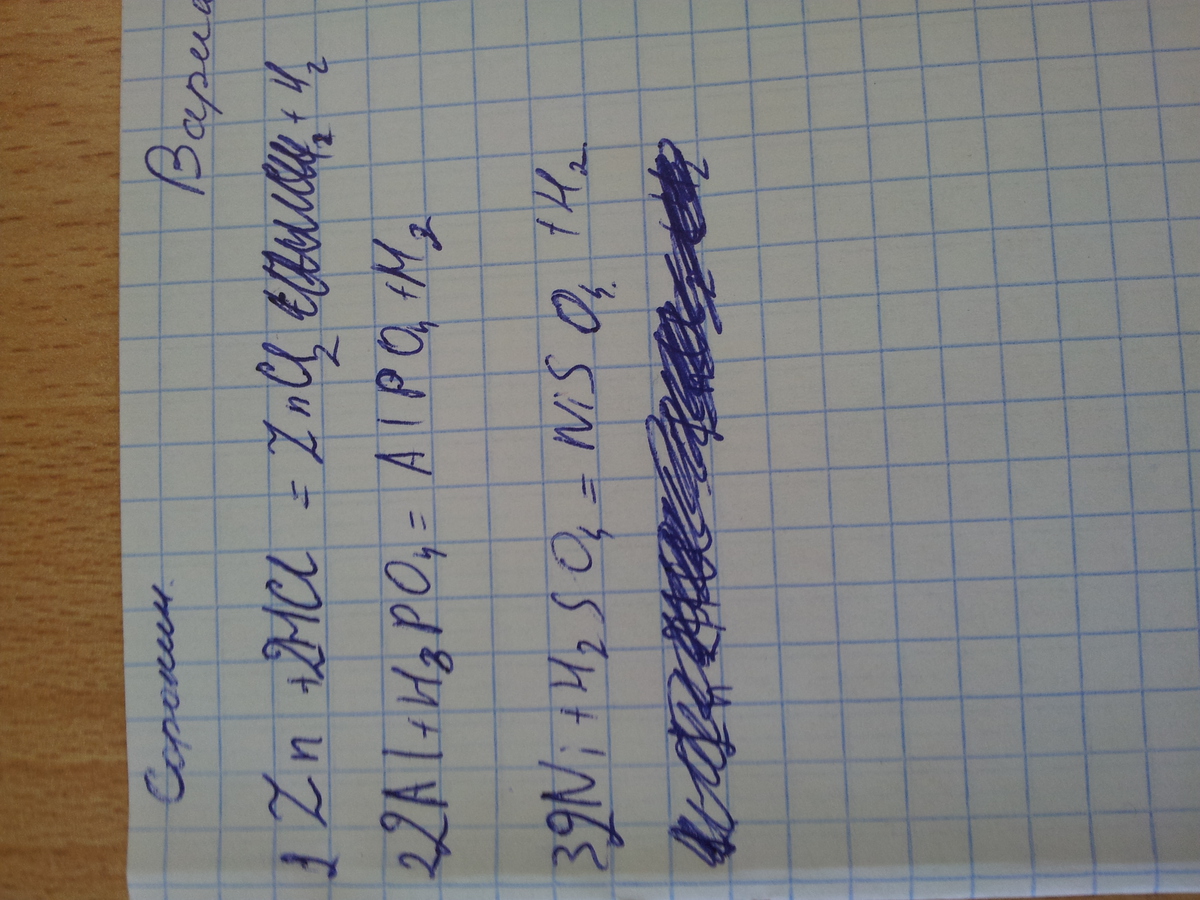 Сорокин. Вариа
1 Zn +2HCl = ZnCl₂ + H₂
2 2Al+H₃PO₄= AlPO₄+H₂
3 2Ni+H₂SO₄= NiSO₄ +H₂